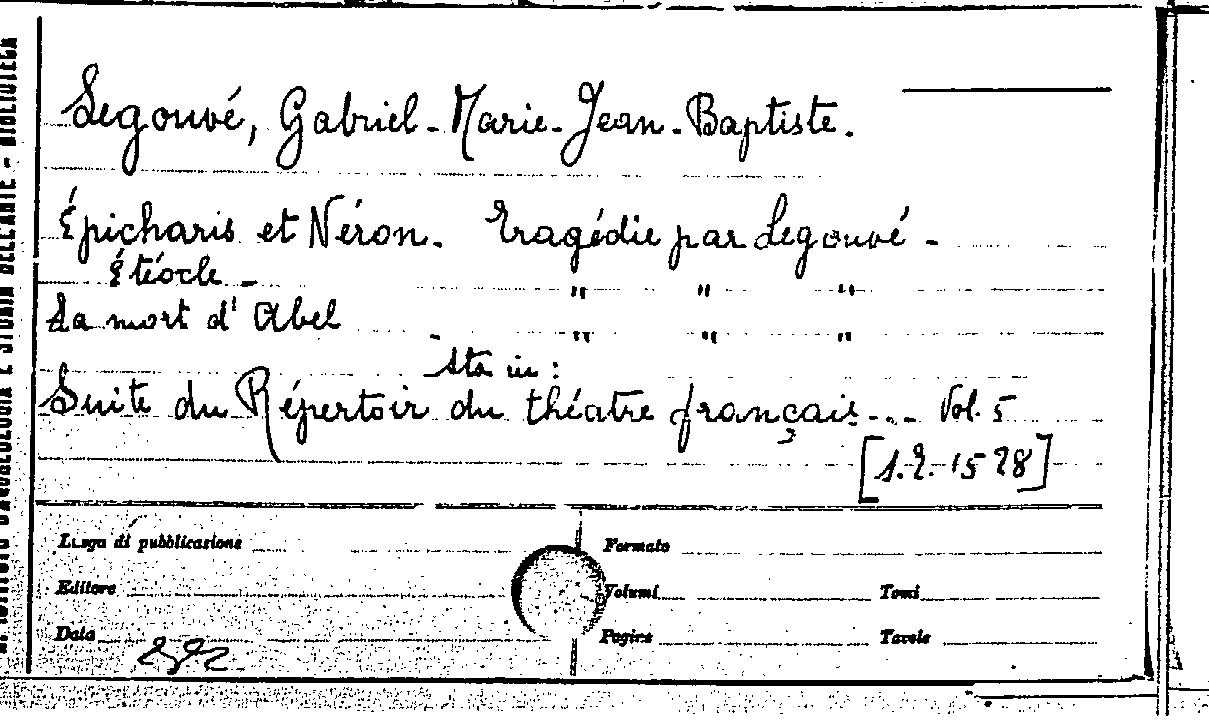 Legouvé, Gabriel-Marie-Jean-Baptiste.
Épicharis et Néron. Tragédie par Legouvé -
Étéocle - " " "
La mort d'Abel - " " "
Sta in:
Suite du Répertoir du théatre français... Vol. 5
[1.2.1528]
Luogo di pubblicazione
Formato
Editore
Volumi
Tomi
Data
Pagine
Tavole
D'ARCHEOLOGIA E STORIA DELL'ARTE - BIBLIOTECA